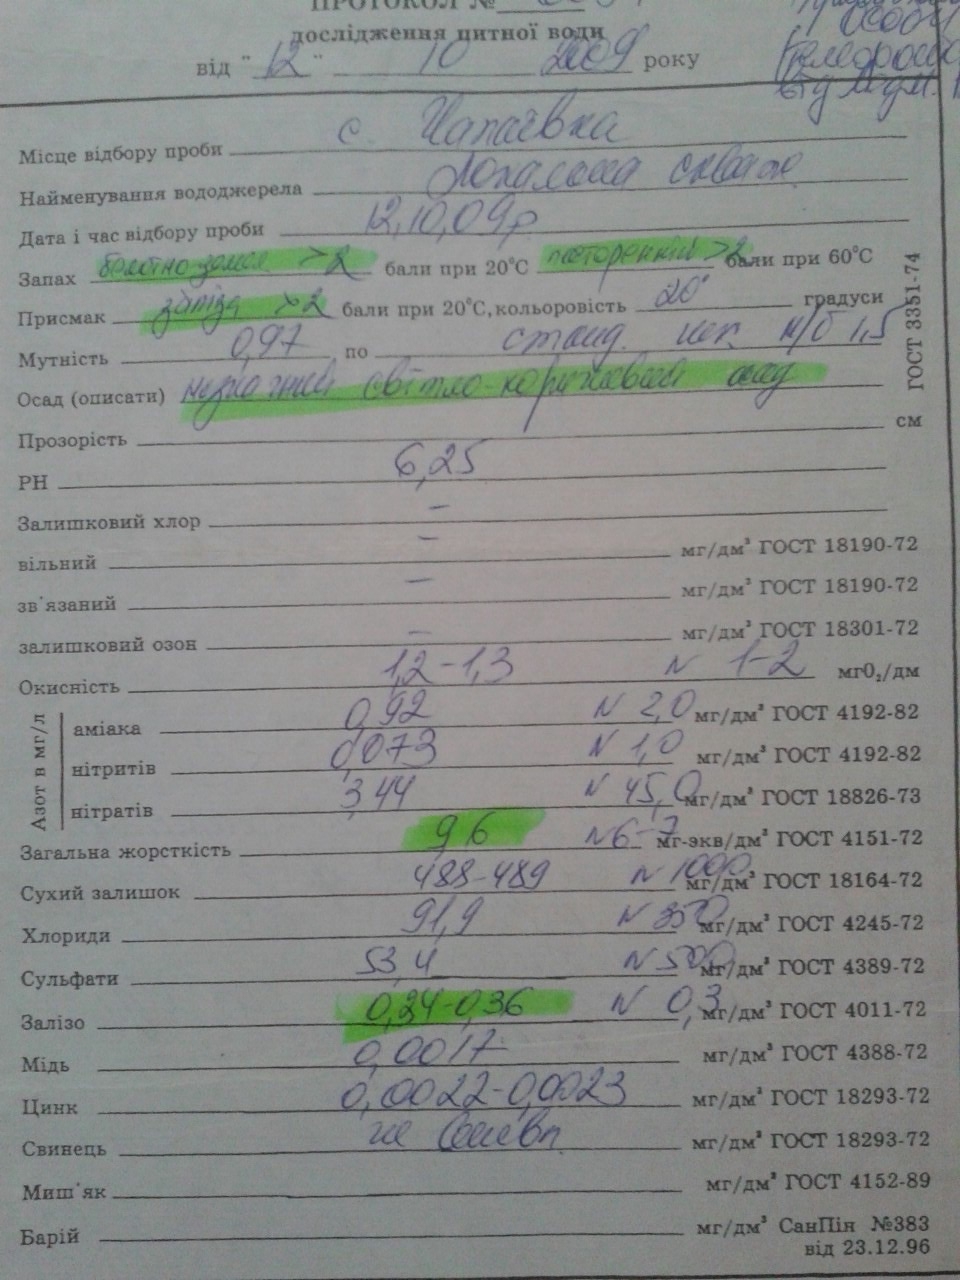 ПРОТОКОЛ №
дослідження питної води
від "12" 10 2009 року
Місце відбору проби с. Чапаєвка
Найменування вододжерела Локальна
Дата і час відбору проби 12,10,09р
Запах >2 бали при 20°С >2 бали при 60°С
Присмак заліза >2 бали при 20°С, кольоровість 20° градуси
Мутність 0,97 по станд. н/б 1,5
ГОСТ 3351-74
Осад (описати) незначний світло-коричневий осад
Прозорість см
РН 6,25
Залишковий хлор –
вільний – мг/дм³ ГОСТ 18190-72
зв'язаний – мг/дм³ ГОСТ 18190-72
залишковий озон – мг/дм³ ГОСТ 18301-72
Окисність 1,2-1,3 N 1-2 мгО₂/дм
Азот в мг/л
аміака 0,92 N 2,0 мг/дм³ ГОСТ 4192-82
нітритів 0,073 N 1,0 мг/дм³ ГОСТ 4192-82
нітратів 3,44 N 45,0 мг/дм³ ГОСТ 18826-73
Загальна жорсткість 9,6 N6-7 мг-экв/дм³ ГОСТ 4151-72
Сухий залишок 488-489 N 1000 мг/дм³ ГОСТ 18164-72
Хлориди 91,9 N 350 мг/дм³ ГОСТ 4245-72
Сульфати 53,4 N 500 мг/дм³ ГОСТ 4389-72
Залізо 0,24-0,36 N 0,3 мг/дм³ ГОСТ 4011-72
Мідь 0,0017 мг/дм³ ГОСТ 4388-72
Цинк 0,0022-0,0023 мг/дм³ ГОСТ 18293-72
Свинець не мг/дм³ ГОСТ 18293-72
Миш'як мг/дм³ ГОСТ 4152-89
Барій мг/дм³ СанПін №383
від 23.12.96